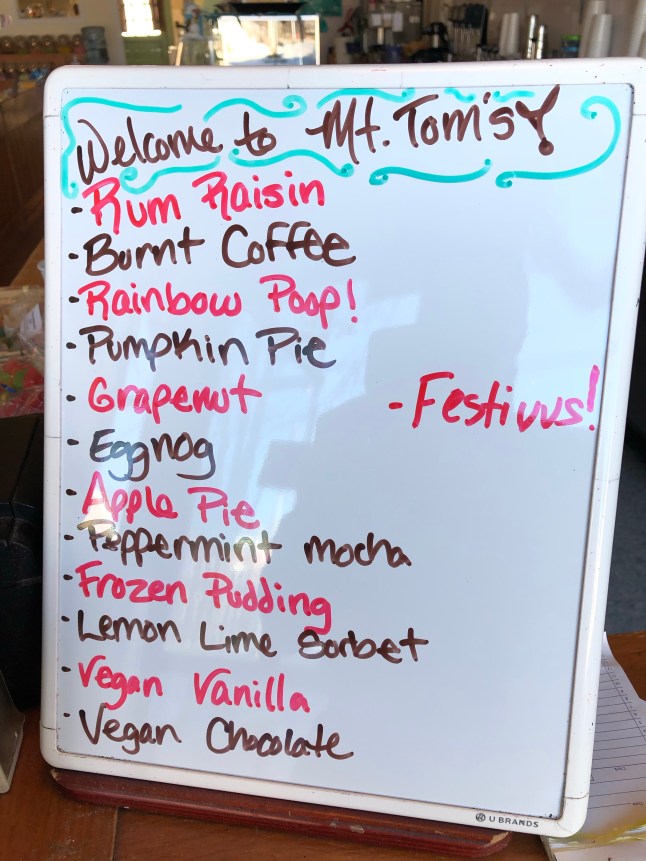 Welcome to Mt. Tom's!
- Rum Raisin
- Burnt Coffee
- Rainbow Poop!
- Pumpkin Pie
- Grapenut
- Festivus!
- Eggnog
- Apple Pie
- Peppermint mocha
- Frozen Pudding
- Lemon Lime Sorbet
- Vegan Vanilla
- Vegan Chocolate
U BRANDS